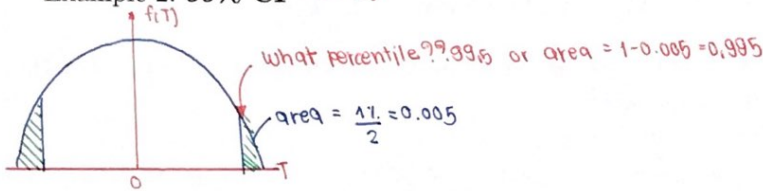 f(T)
what percentile?? 99.5 or area = 1-0.005 = 0.995
area = 1%/2 = 0.005
T
0